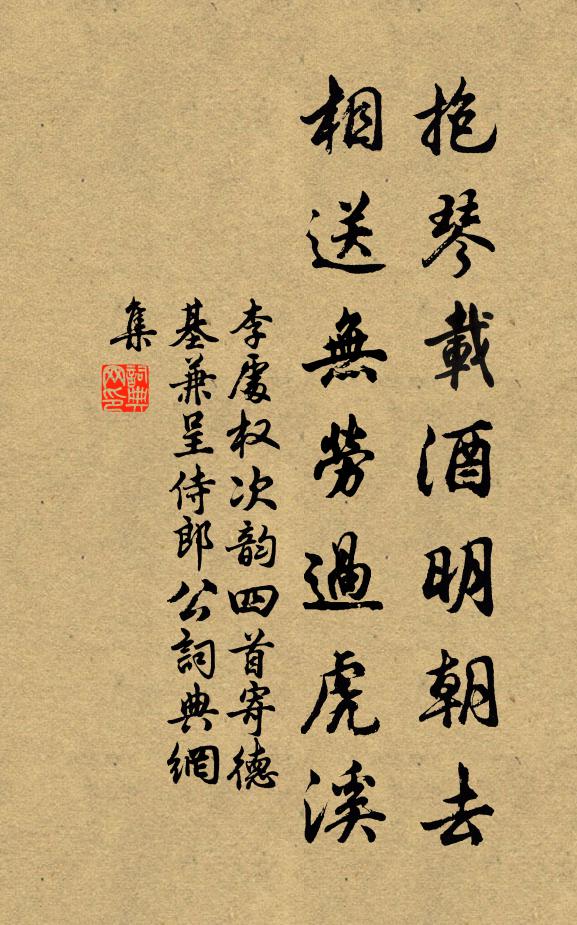 抱琴載酒明朝去
相送無勞過虎溪
李處权次韵四首寄德
基兼呈侍郎公詞典網
集
詞典
网印